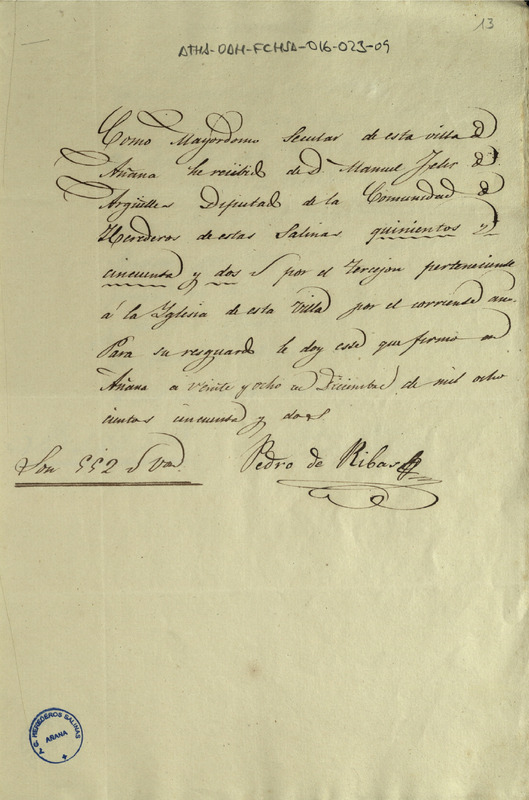 13
ATHA-DAH-FCHSA-016-023-09
Como Mayordomo Secular de esta villa de
Añana he recibido de D. Manuel Felix de
Argüelles Diputado de la Comunidad de
Herederos de estas Salinas quinientos y
cincuenta y dos por el tercejon perteneciente
á la Iglesia de esta Villa por el corriente
Para su resguardo le doy este que firmo en
Añana a veinte y ocho de Diciembre de mil ocho
cientos cincuenta y dos
Son 552
Pedro de Ribas
J. G. HEREDEROS SALINAS
AÑANA